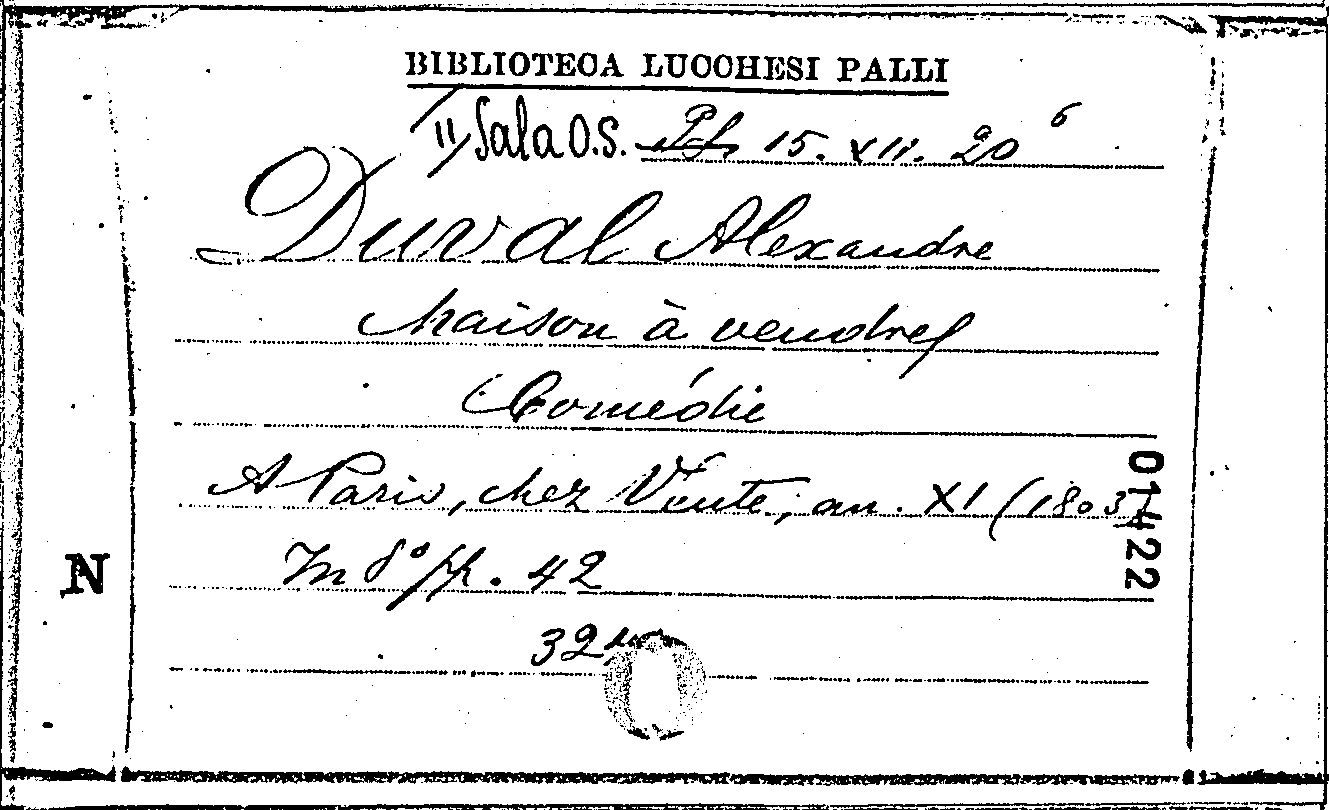 BIBLIOTECA LUCCHESI PALLI
II Sala O.S. 15. XII. 20 6
Duval Alexandre
Maison à vendre
Comédie
A Paris, chez Vente, an. XI (1803)
In 8° pp. 42
32
01422
N